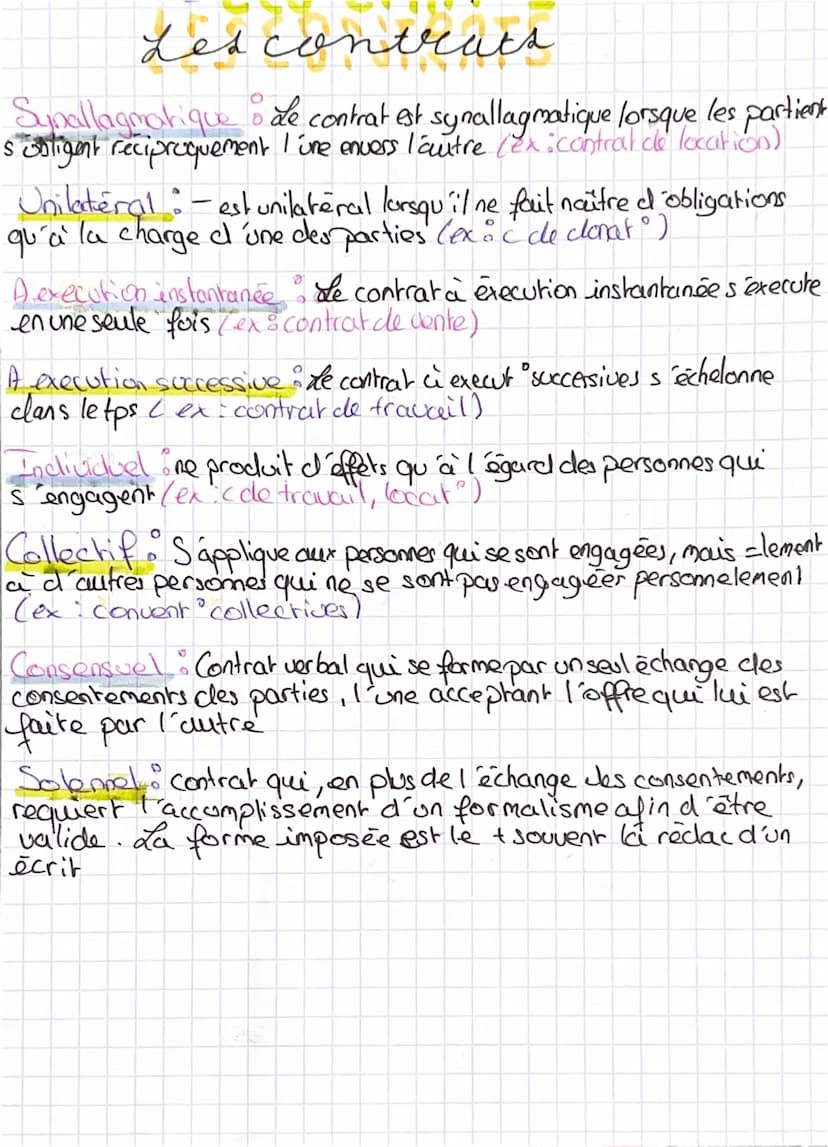 Les contrats
Synallagmatique : Le contrat est synallagmatique lorsque les partient
s'obligent réciproquement l'une envers l'autre (ex : contrat de location)
Unilatéral : - est unilatéral lorsqu'il ne fait naître d'obligations
qu'à la charge d'une des parties (ex : c de donat°)
A execution instantanée : Le contrat à éxecution instantanée s'éxecute
en une seule fois (ex : contrat de vente)
A execution successive : Le contrat à execut° successives s'échelonne
dans le tps (ex : contrat de travail)
Individuel : ne produit d'effets qu'à l'égard des personnes qui
s'engagent (ex : c de travail, locat°)
Collectif : S'applique aux personnes qui se sont engagées, mais =lement
à d'autres personnes qui ne se sont pas engagéer personnelement
(ex : convent° collectives)
Consensuel : Contrat verbal qui se forme par un seul échange des
consentements des parties, l'une acceptant l'offre qui lui est
faite par l'autre
Solennel : contrat qui, en plus de l'échange des consentements,
requiert l'accomplissement d'un formalisme afin d'être
valide. La forme imposée est le + souvent la rédac d'un
écrit